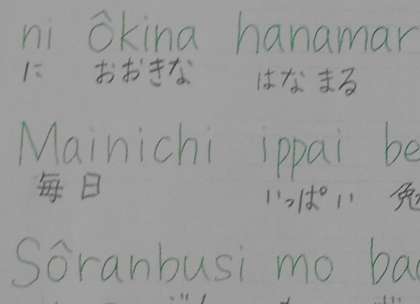 ni ôkina hanamar
に おおきな はなまる
Mainichi ippai be
毎日 いっぱい 勉
Sôranbusi mo ba